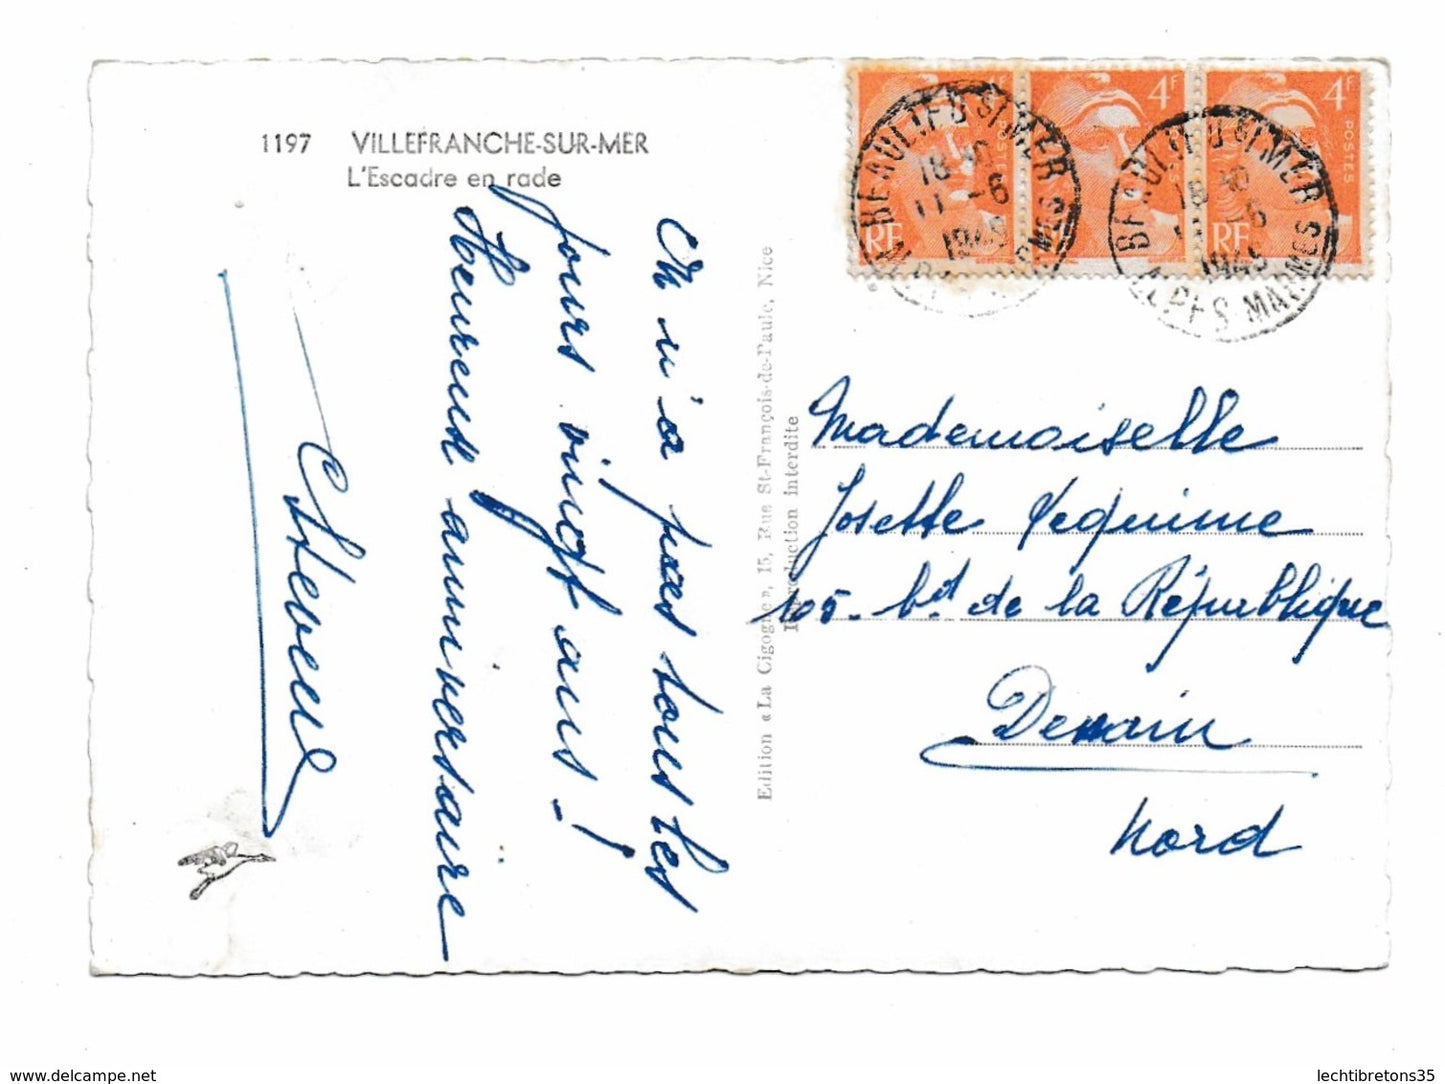 1197 VILLEFRANCHE-SUR-MER
L'Escadre en rade
On n'a pas tous les
jours vingt ans !
Heureux anniversaire
Edition « La Cigogne », 15, Rue St-François-de-Paule, Nice
Reproduction interdite
4F
POSTES
RF
4F
POSTES
RF
4F
POSTES
RF
BEAULIEU S/ MER
18
11 -6
ALPES MARMES
BEAULIEU S/ MER
18
-6
ALPES MARMES
Mademoiselle
Josette
105 - bd de la République
Denain
Nord
delcampe.net
lechtibretons35